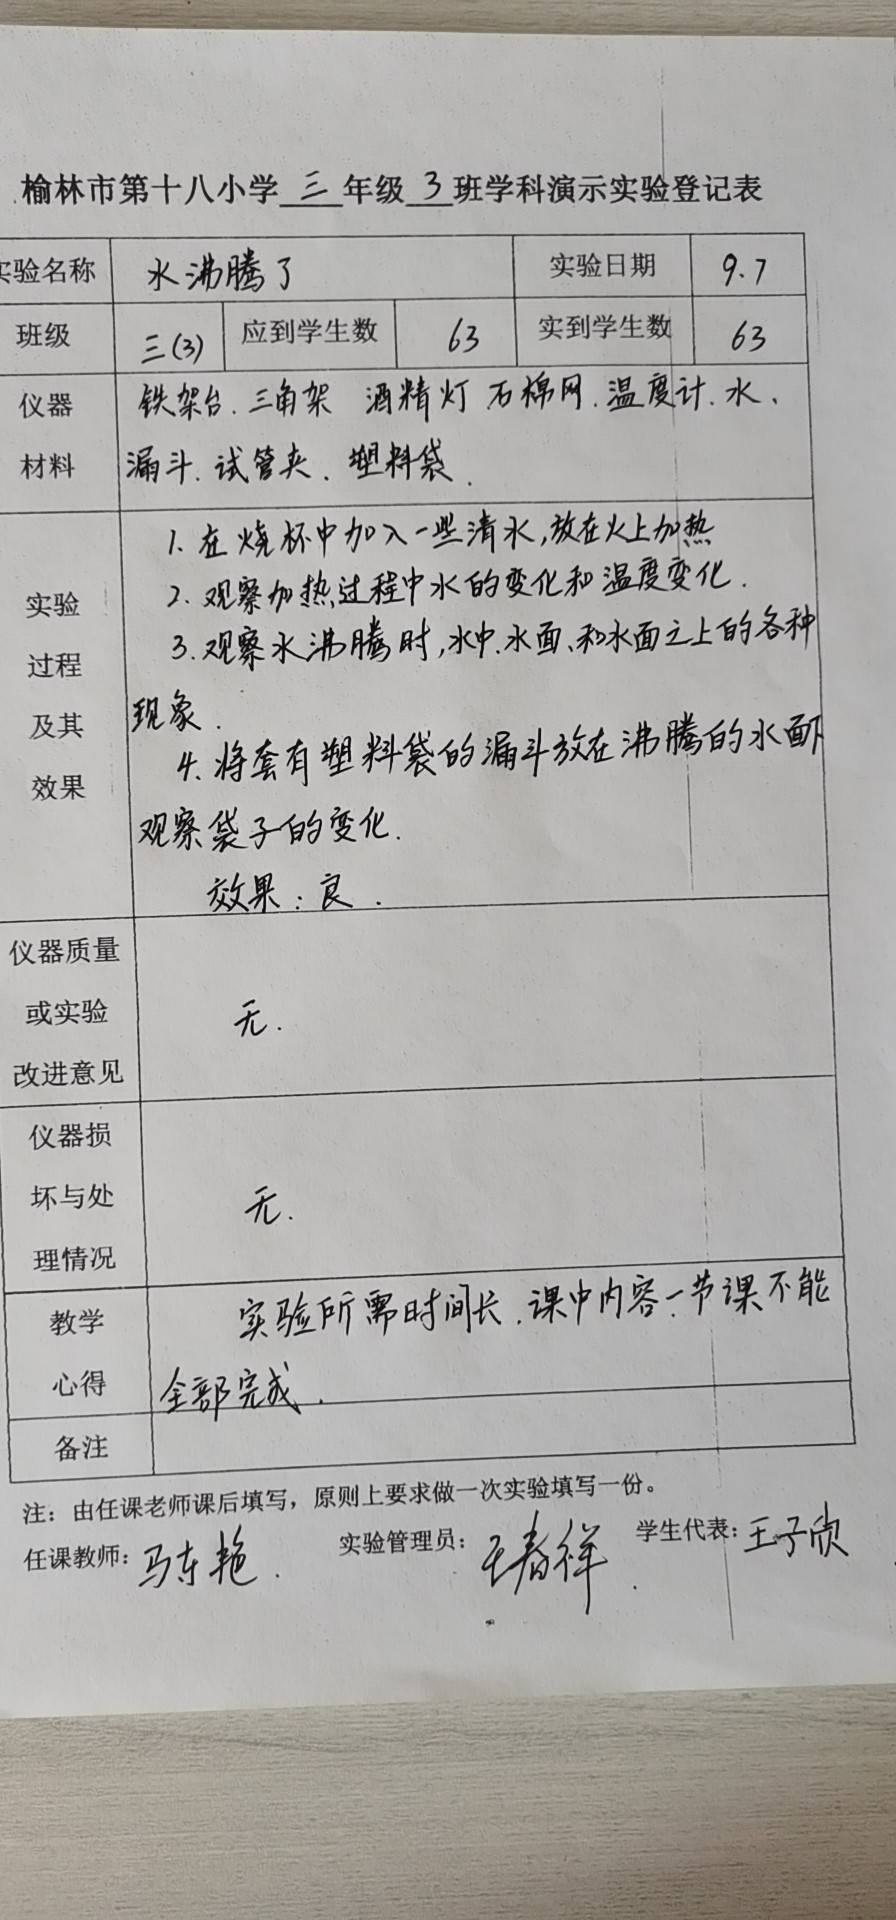 榆林市第十八小学 三 年级 3 班学科演示实验登记表
实验名称 水沸腾了 实验日期 9.7
班级 三(3) 应到学生数 63 实到学生数 63
仪器 铁架台.三角架 酒精灯 石棉网.温度计.水、
材料 漏斗.试管夹.塑料袋.
1.在烧杯中加入一些清水,放在火上加热
实验 2.观察加热过程中水的变化和温度变化.
过程 3.观察水沸腾时,水中.水面、和水面之上的各种
及其 现象.
效果 4.将套有塑料袋的漏斗放在沸腾的水面下
观察袋子的变化.
效果:良.
仪器质量
或实验 无.
改进意见
仪器损
坏与处 无.
理情况
教学 实验所需时间长.课中内容一节课不能
心得 全部完成.
备注
注：由任课老师课后填写，原则上要求做一次实验填写一份。
任课教师: 马东艳. 实验管理员: 王春祥. 学生代表: 王子欣